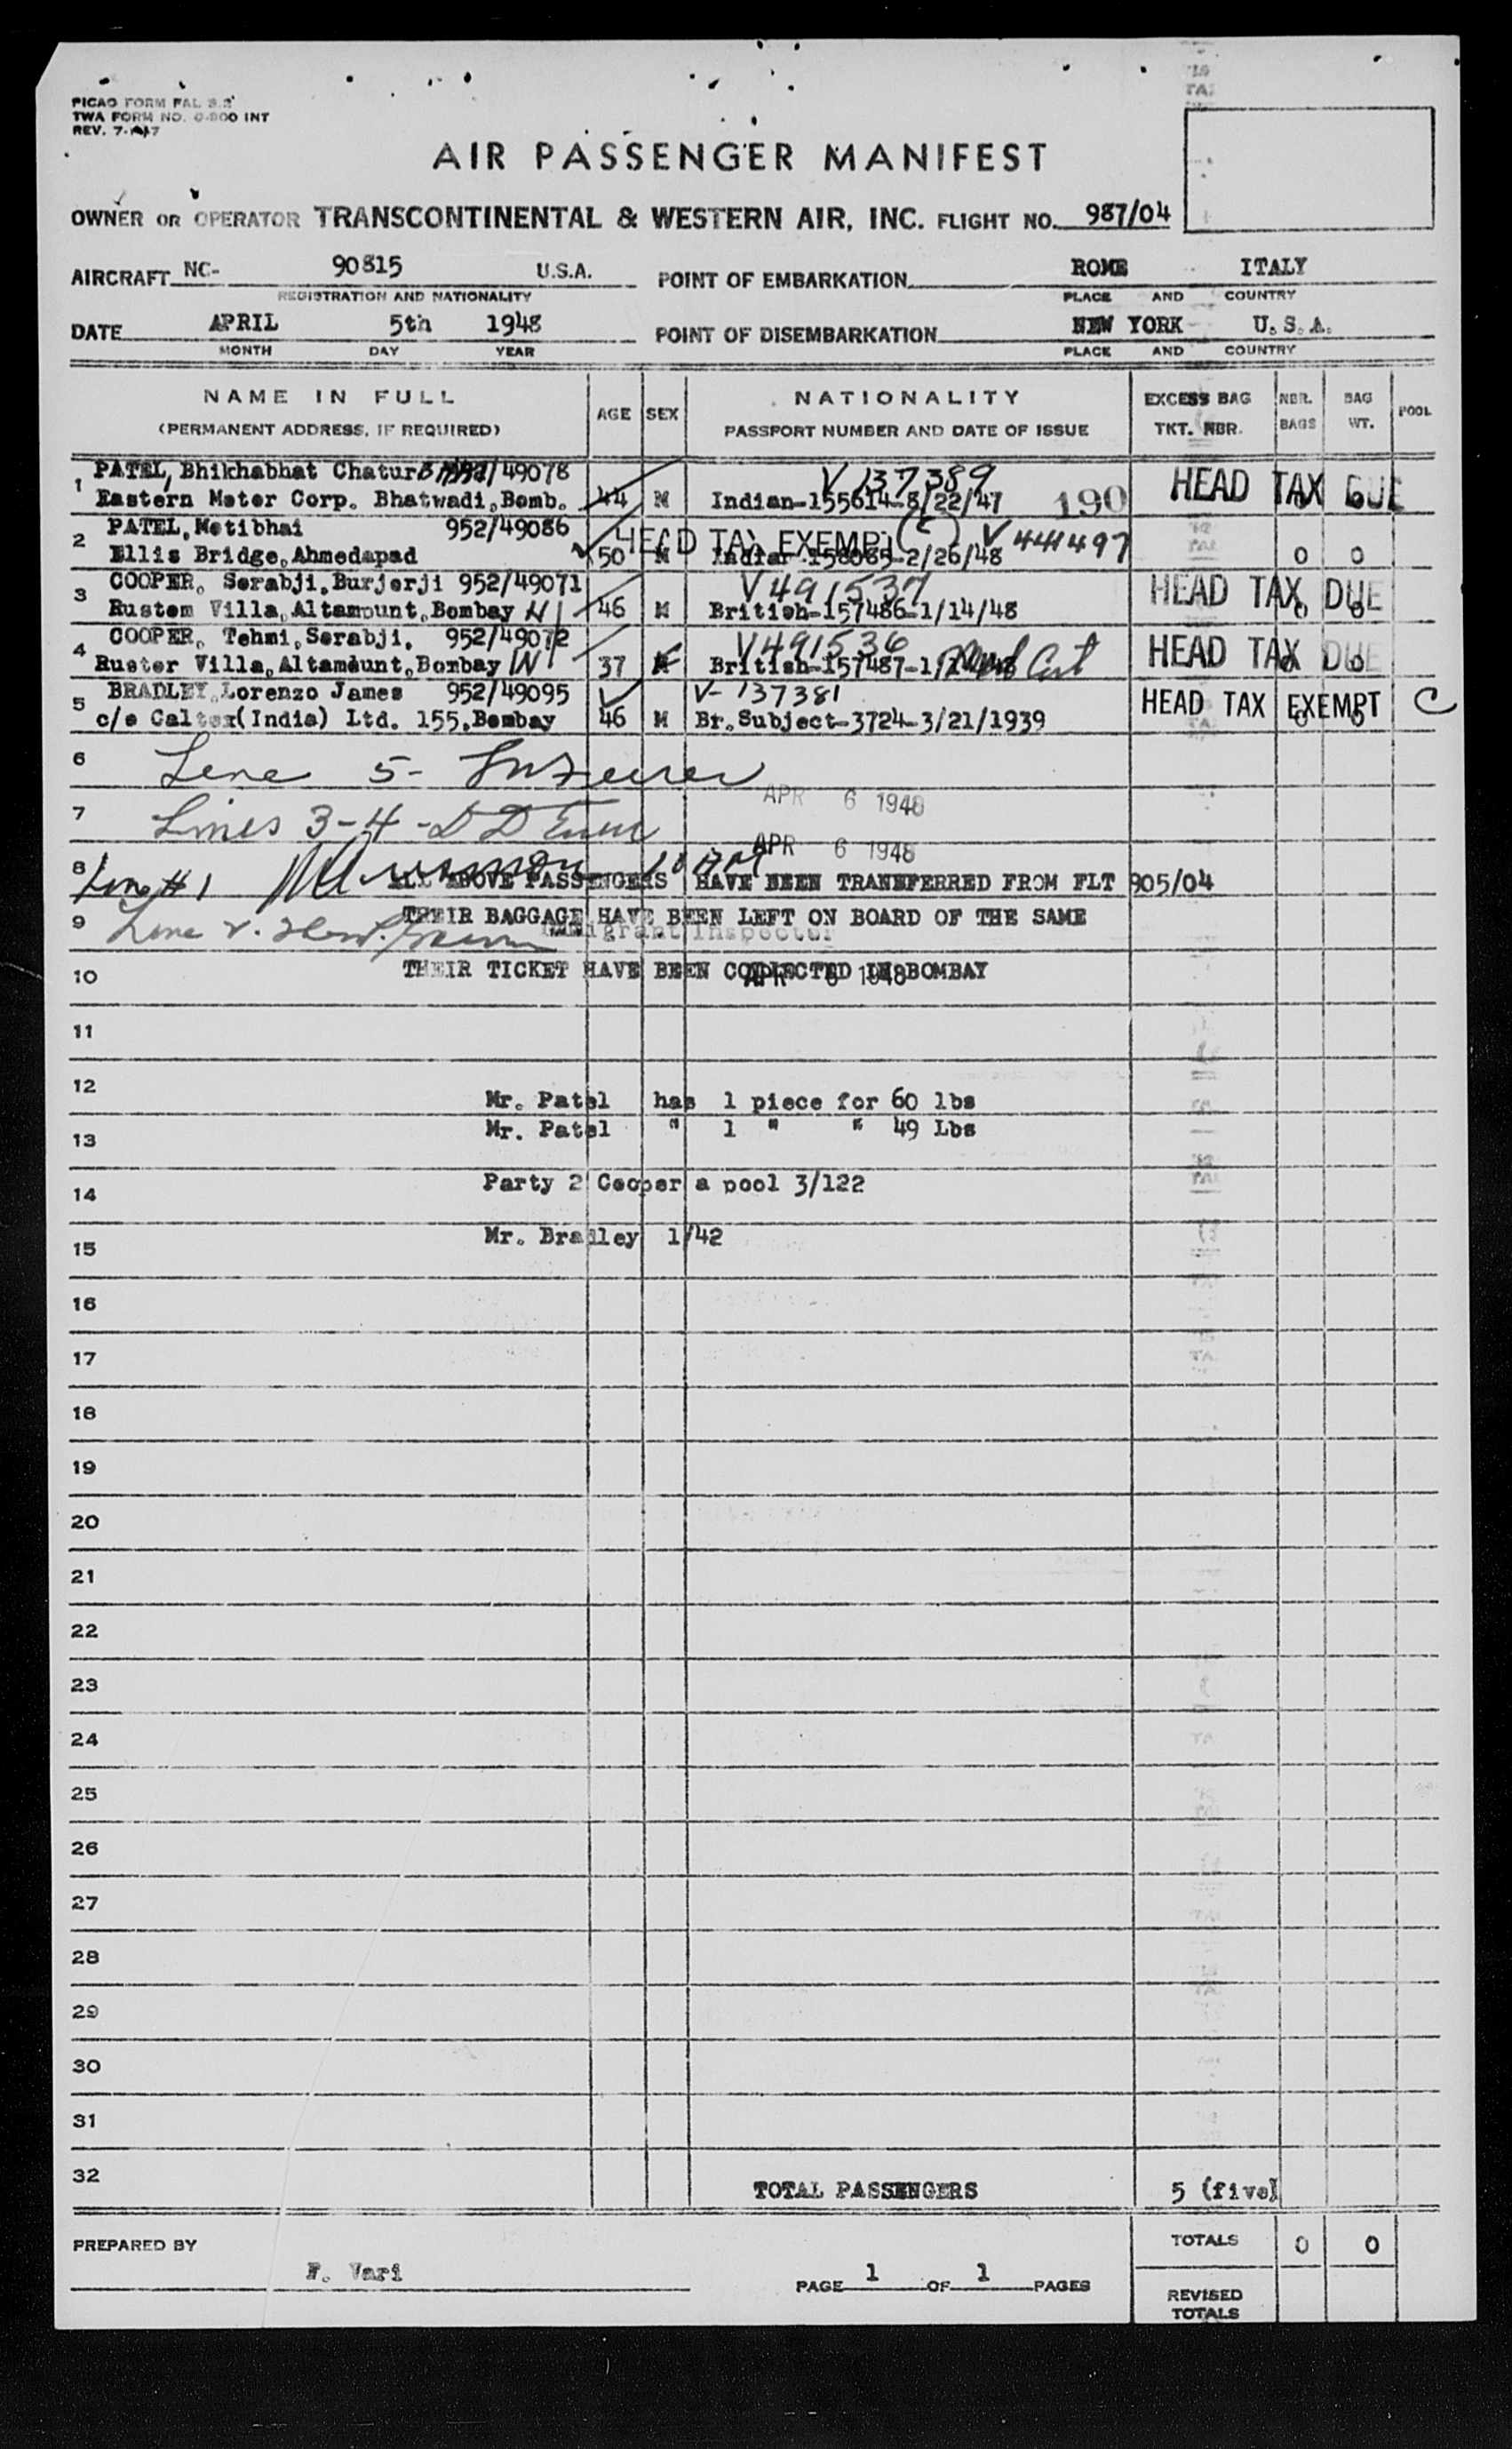 PICAO FORM FAL 2.2
TWA FORM NO. 0-800 INT
REV. 7-1-47
AIR PASSENGER MANIFEST
OWNER OR OPERATOR TRANSCONTINENTAL & WESTERN AIR, INC. FLIGHT NO. 987/04
AIRCRAFT NC- 90815 U.S.A. POINT OF EMBARKATION ROME ITALY
REGISTRATION AND NATIONALITY PLACE AND COUNTRY
DATE APRIL 5th 1948 POINT OF DISEMBARKATION NEW YORK U.S.A.
MONTH DAY YEAR PLACE AND COUNTRY
NAME IN FULL AGE SEX NATIONALITY EXCESS BAG NBR. BAG POOL
(PERMANENT ADDRESS, IF REQUIRED) PASSPORT NUMBER AND DATE OF ISSUE TKT. NBR. BAGS WT.
1 PATEL, Bhikhabhat Chatur /49078 V 137389 HEAD TAX DUE
Eastern Moter Corp. Bhatwadi, Bomb. 44 M Indian-155614-8/22/47 190
2 PATEL, Motibhai 952/49086 HEAD TAX EXEMPT (C) V 441497
Ellis Bridge, Ahmedapad 50 M Indian-158085-2/26/48 0 0
3 COOPER, Sorabji, Burjorji 952/49071 V491537 HEAD TAX DUE
Rustom Villa, Altamount, Bombay H 46 M British-157486-1/14/48 0 0
4 COOPER, Tehmi, Sorabji, 952/49072 V491536 HEAD TAX DUE
Ruster Villa, Altamount, Bombay W 37 British-157487-1/14/48 Med Cert 0 0
5 BRADLEY, Lorenzo James 952/49095 V-137381 HEAD TAX EXEMPT C
c/o Caltex(India) Ltd. 155, Bombay 46 M Br. Subject-3724-3/21/1939 0 0
6 Line 5-
APR 6 1948
7 Lines 3-4-
APR 6 1948
8 Line #1
ALL ABOVE PASSENGERS HAVE BEEN TRANSFERRED FROM FLT 905/04
9 THEIR BAGGAGE HAVE BEEN LEFT ON BOARD OF THE SAME
Line 2. Immigrant Inspector
10 THEIR TICKET HAVE BEEN COLLECTED IN BOMBAY
APR 6 1948
11
12 Mr. Patel has 1 piece for 60 lbs
13 Mr. Patel " 1 " " 49 Lbs
14 Party 2 Cooper a pool 3/122
15 Mr. Bradley 1/42
16
17
18
19
20
21
22
23
24
25
26
27
28
29
30
31
32 TOTAL PASSENGERS 5 (five)
PREPARED BY F. Vari TOTALS 0 0
PAGE 1 OF 1 PAGES REVISED TOTALS